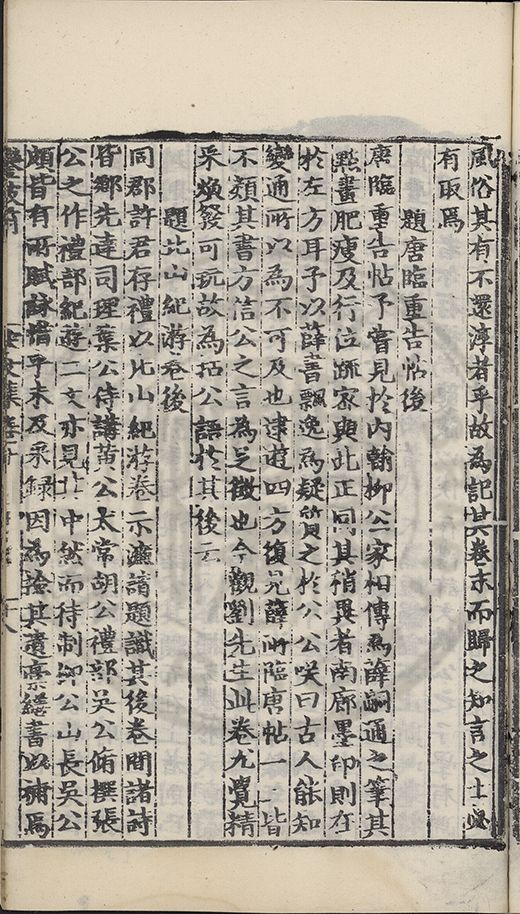 風俗其有不還淳者乎故為記其卷末而歸之知言之士必
有取焉
題唐臨重告帖後
唐臨重告帖予嘗見於內翰柳公家相傳為薛嗣通之筆其
點畫肥瘦及行位疎密與此正同其稍異者南廊墨印則在
於左方耳予以薛書飄逸為疑質之於公公咲曰古人能知
變通所以為不可及也逮遊四方復見薛所臨唐帖一二皆
不類其書方洽公之言為足徵也今觀劉先生此卷尤覺精
采煥發可玩故為拈公語於其後云
題北山紀游卷後
同郡許君存禮以北山紀游卷示濂請題識其後卷間諸詩
皆鄉先達司理葉公待講黃公太常胡公禮部吳公脩撰張
公之作禮部紀遊二文亦見其中然而待制柳公山長吳公
頗皆有所賦詠惜乎未及采録因為撿其遺稾繕書以補焉